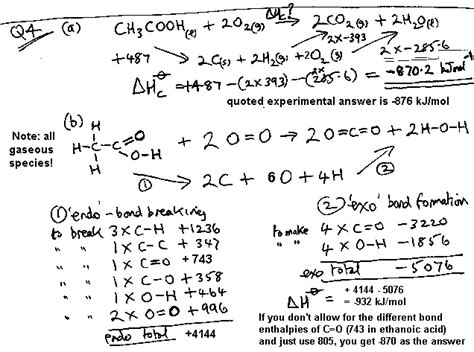 Q4. (a) CH₃COOH(l) + 2O₂(g) ΔHc? → 2CO₂(g) + 2H₂O(l)
+487 2C(s) + 2H₂(g) + 2O₂(g) 2x-393 2x-285.6
ΔHc⊖ = +487 - (2x393) - (2x285.6) = -870.2 kJmol⁻¹
quoted experimental answer is -876 kJ/mol
(b)
Note: all
gaseous
species!
H
H-C-C=O
H O-H
+ 2 O=O → 2O=C=O + 2H-O-H
① 2C + 6O + 4H ②
① 'endo' - bond breaking
to break 3 x C-H +1236
" " 1 x C-C + 347
" " 1 x C=O +743
" " 1 x C-O +358
" " 1 x O-H +464
" " 2 x O=O +996
endo total +4144
② 'exo' bond formation
to make 4 x C=O -3220
" " 4 x O-H -1856
exo total -5076
ΔH⊖ = + 4144 - 5076
= -932 kJ/mol
If you don't allow for the different bond
enthalpies of C=O (743 in ethanoic acid)
and just use 805, you get -870 as the answer